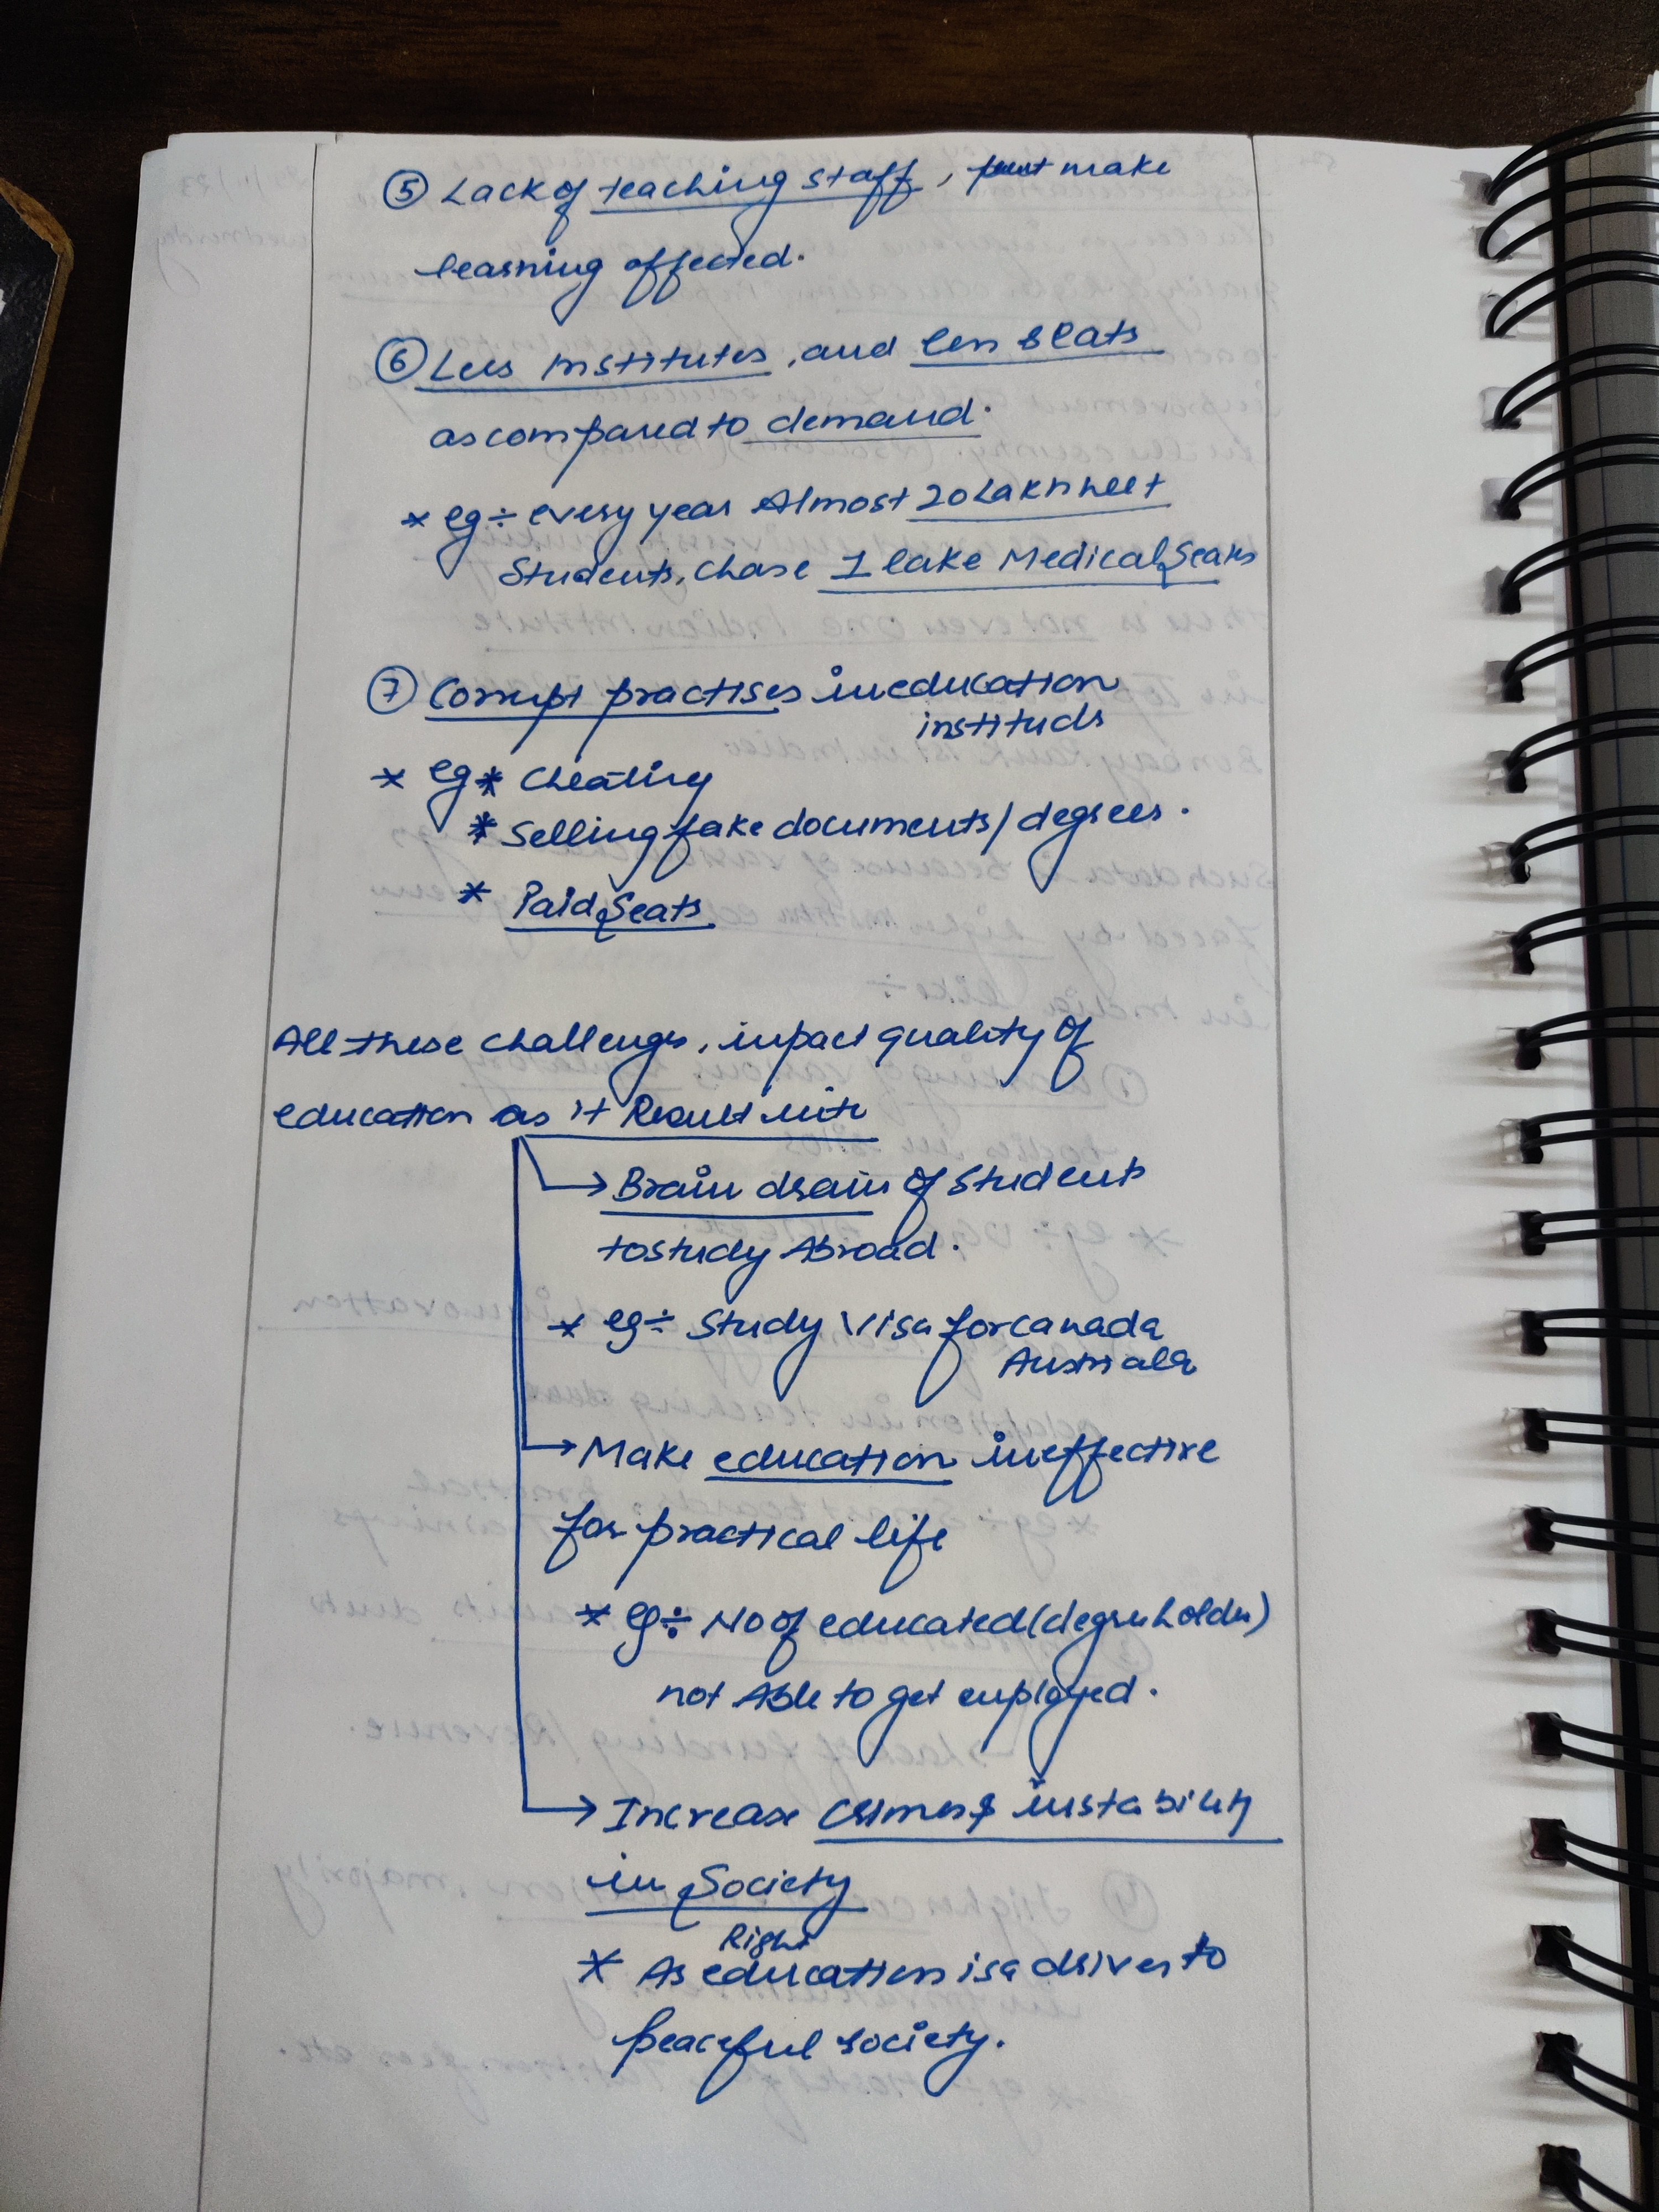 ⑤ Lack of teaching staff, make
learning affected.
⑥ Less institutes, and less seats
as compared to demand.
* eg÷ every year Almost 20 Lakh neet
Students, chase 1 lake Medical Seats
⑦ Corrupt practises in education
instituds
* eg * Cheating
* Selling fake documents/degrees.
* Paid Seats
All these challenges, impact quality of
education as it Result into
→ Brain drain of student
to study Abroad.
* eg÷ Study Visa for canada
→ Make education ineffective
for practical life
* eg÷ No of educated (degree holder)
not Able to get employed.
→ Increase crimes & instability
in Society
Right
* As education is a driver to
peaceful society.